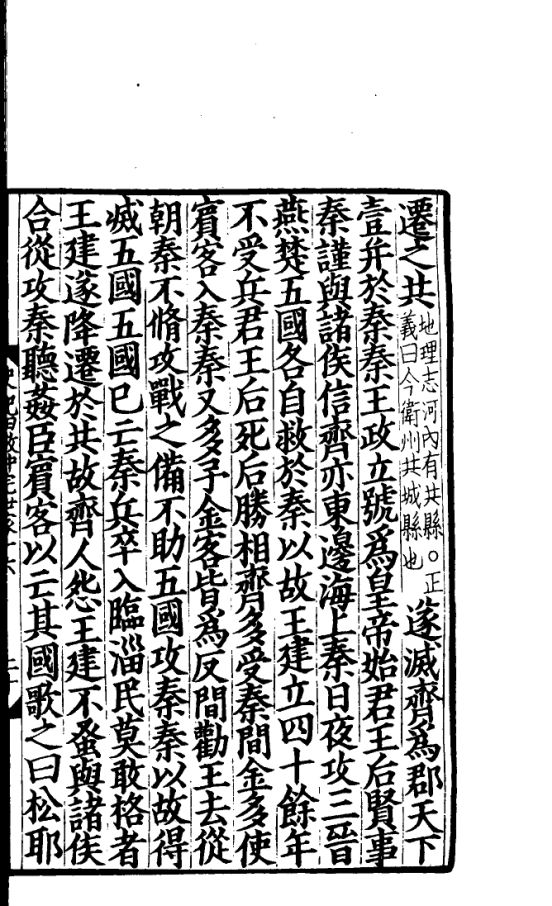 遷之共地理志河內有共縣○正義曰今衛州共城縣也遂滅齊爲郡天下
壹并於秦秦王政立號爲皇帝始君王后賢事
秦謹與諸侯信齊亦東邊海上秦日夜攻三晉
燕楚五國各自救於秦以故王建立四十餘年
不受兵君王后死后勝相齊多受秦間金多使
賓客入秦秦又多予金客皆爲反間勸王去從
朝秦不脩攻戰之備不助五國攻秦秦以故得
滅五國五國已亡秦兵卒入臨淄民莫敢格者
王建遂降遷於共故齊人怨王建不蚤與諸侯
合從攻秦聽姦臣賓客以亡其國歌之曰松耶